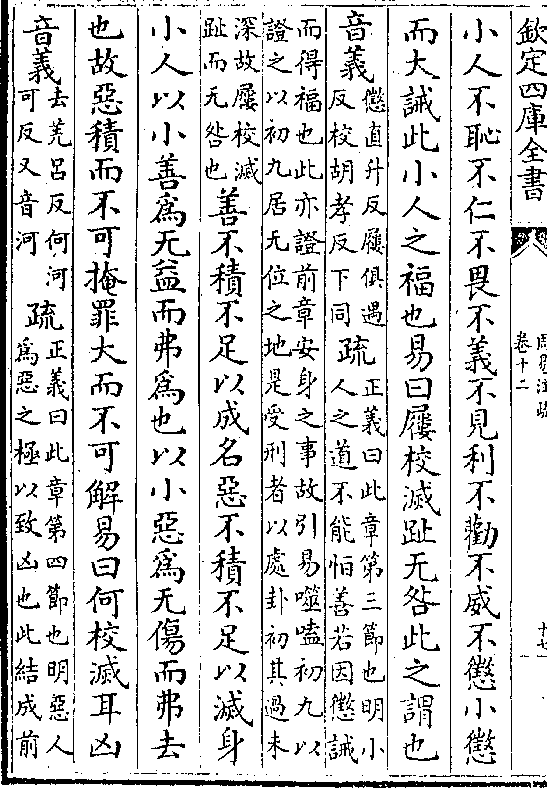 欽定四庫全書
周易注疏
卷十二
十七
小人不恥不仁不畏不義不見利不勸不威不懲小懲
而大誡此小人之福也易曰屨校滅趾无咎此之謂也
音義
懲直升反屨俱遇
反校胡孝反下同
疏
正義曰此章第三節也明小
人之道不能怕善若因懲誡
而得福也此亦證前章安身之事故引易噬嗑初九以
證之以初九居无位之地是受刑者以處卦初其過未
深故屨校滅
趾而无咎也
善不積不足以成名惡不積不足以滅身
小人以小善為无益而弗為也以小惡為无傷而弗去
也故惡積而不可掩罪大而不可解易曰何校滅耳凶
音義
去羌呂反何河
可反又音河
疏
正義曰此章第四節也明惡人
為惡之極以致凶也此結成前